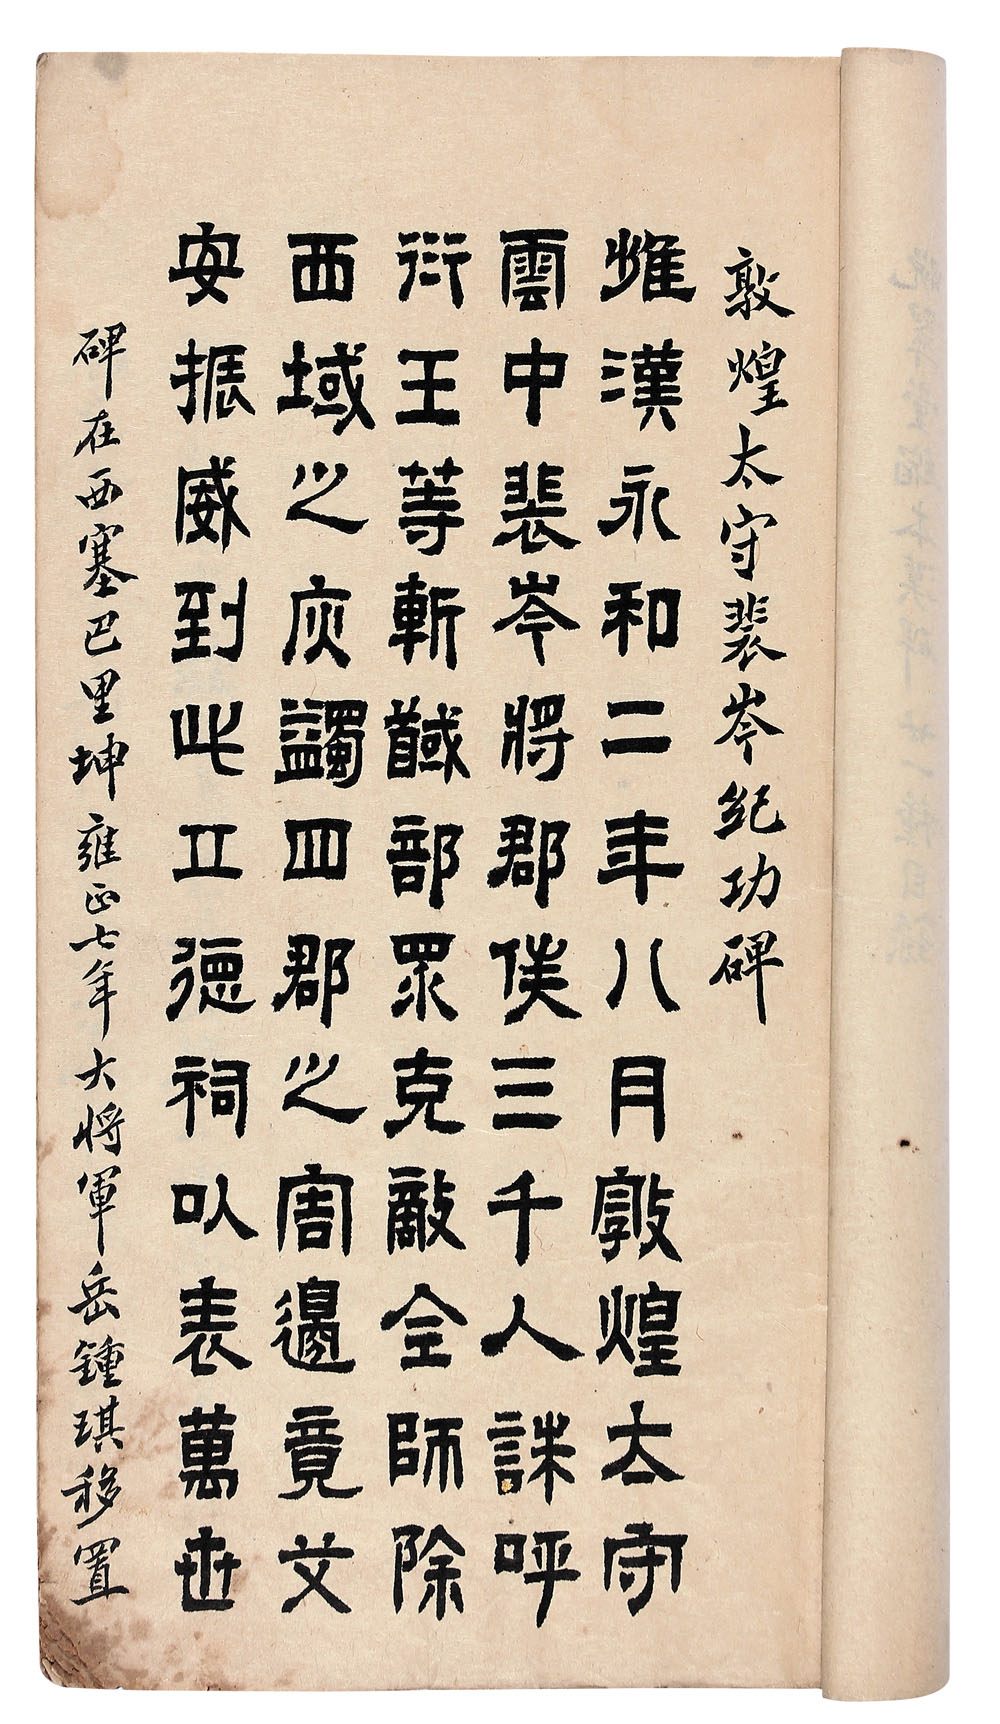 敦煌太守裴岑紀功碑
惟漢永和二年八月敦煌太守
雲中裴岑將郡侯三千人誅呼
衍王等斬馘部眾克敵全師除
西域之疢蠲四郡之害邊竟艾
安振威到此立德祠以表萬世
碑在西塞巴里坤雍正七年大將軍岳鍾琪移置